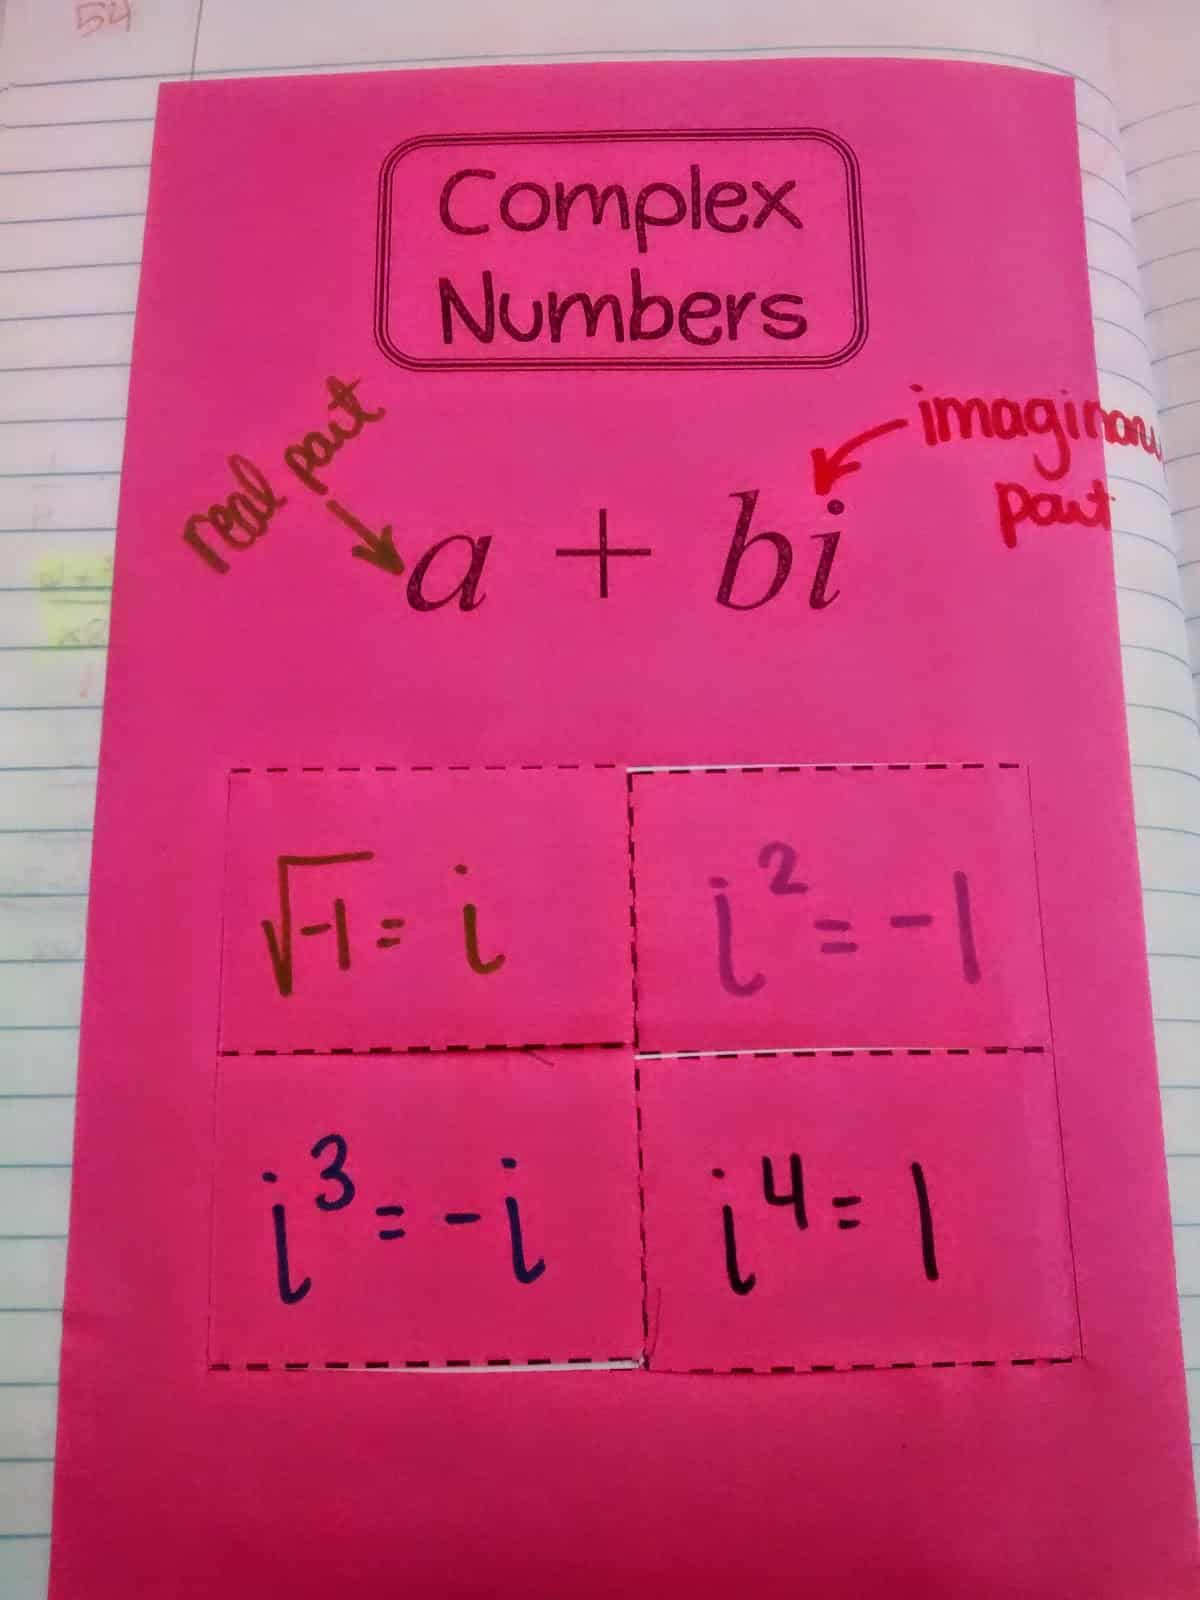 54
Complex
Numbers
real part
imaginary
part
a + bi
√-1 = i
i² = -1
i³ = -i
i⁴ = 1